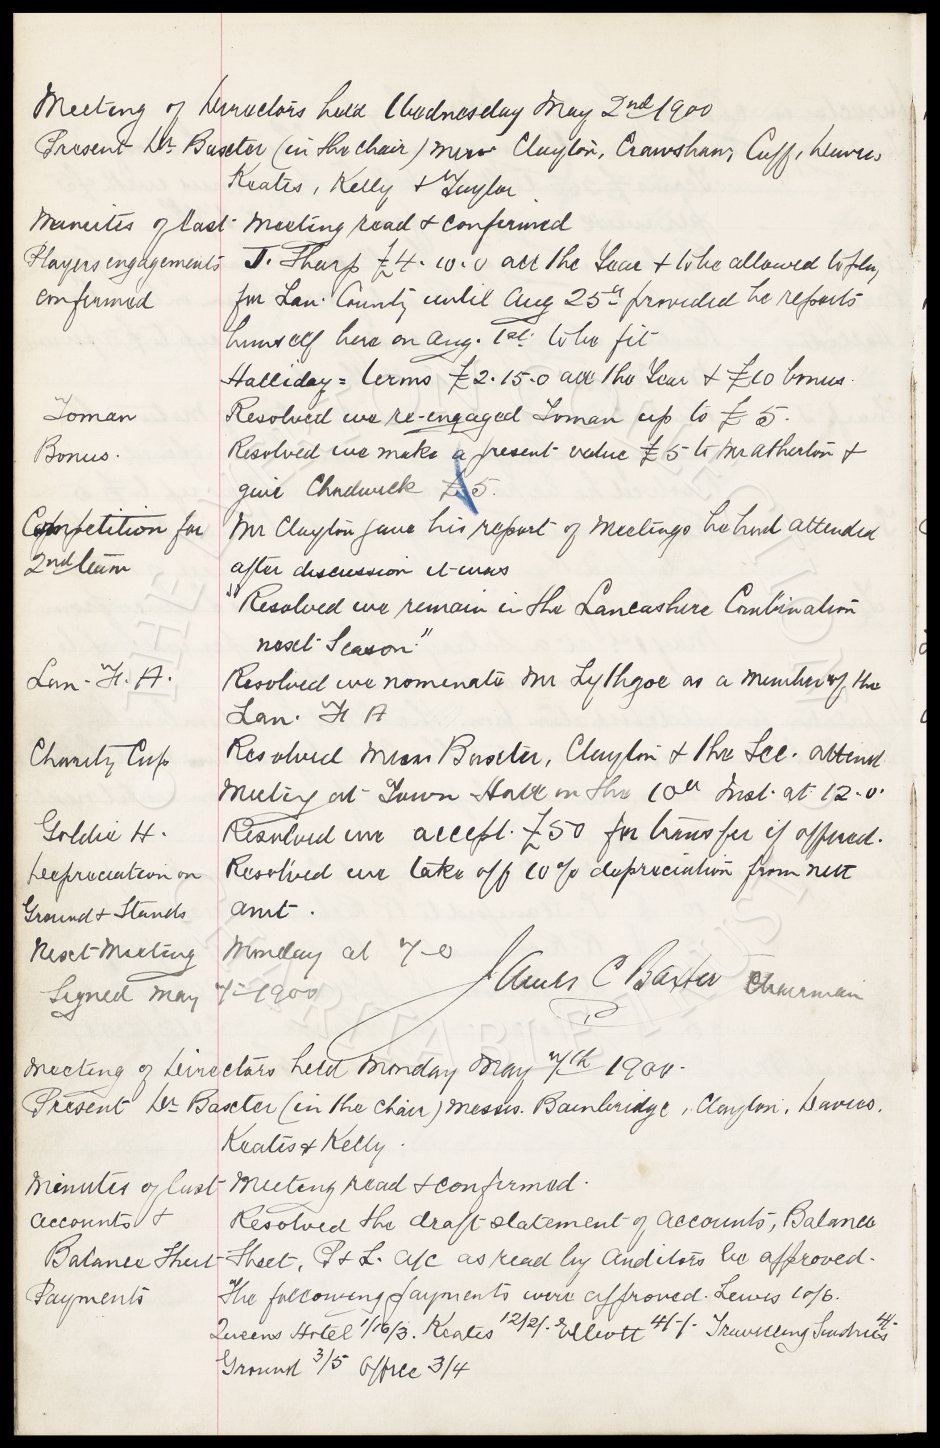 Meeting of Directors held Wednesday May 2nd 1900
Present Dr Baxter (in the chair) Messrs Clayton, Crawshaw, Cuff, Davies
Keates, Kelly & Taylor
Minuites of last Meeting read & confirmed
Players engagements J. Sharp £4.10.0 all the Year & to be allowed to play
confirmed for Lan. County until Aug 25th provided he reports
himself here on Aug. 1st to be fit
Halliday = terms £2.15.0 all the Year & £10 bonus.
Toman Resolved we re-engaged Toman up to £5.
Bonus. Resolved we make a present value £5 to Mr Atherton &
give Chadwick £5.
Competition for Mr Clayton gave his report of Meetings he had attended
2nd team after discussion it was
"Resolved we remain in the Lancashire Combination
next Season."
Lan. F. A. Resolved we nominate Mr Lythgoe as a Member of the
Lan. F A
Charity Cup Resolved Messrs Baxter, Clayton & the Sec. attend
Meeting at Town Hall on the 10th Inst. at 12.0.
Goldie H. Resolved we accept £50 for transfer if offered.
Depreciation on Resolved we take off 10% depreciation from nett
Ground & Stands amt.
Next Meeting Monday at 7-0
Signed May 7-1900 James C Baxter Chairman
Meeting of Directors held Monday May 7th 1900.
Present Dr Baxter (in the chair) Messrs. Bainbridge, Clayton, Davies,
Keates & Kelly.
Minutes of last Meeting read & confirmed.
Accounts & Resolved the draft statement of accounts, Balance
Balance Sheet Sheet, P & L. a/c as read by Auditors be approved.
Payments The following payments were approved. Lewis 10/6.
Queens Hotel 1/16/3. Keates 12/2/- Elliott 4/-/- Travelling Sundries 4/-
Ground 3/5 Office 3/4
THE
CHARITABLE TRUST